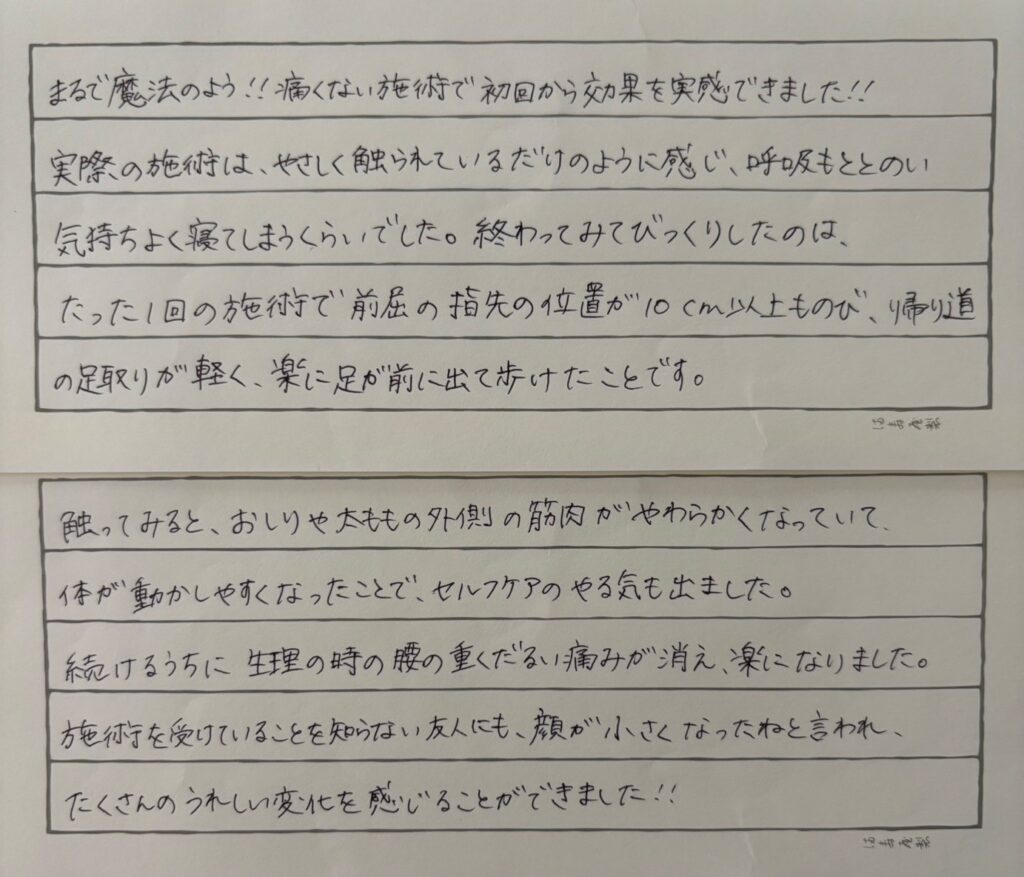 まるで魔法のよう!!痛くない施術で初回から効果を実感できました!!
実際の施術は、やさしく触られているだけのように感じ、呼吸もととのい
気持ちよく寝てしまうくらいでした。終わってみてびっくりしたのは、
たった1回の施術で前屈の指先の位置が10cm以上ものび、帰り道
の足取りが軽く、楽に足が前に出て歩けたことです。
触ってみると、おしりや太ももの外側の筋肉がやわらかくなっていて、
体が動かしやすくなったことで、セルフケアのやる気も出ました。
続けるうちに生理の時の腰の重くだるい痛みが消え、楽になりました。
施術を受けていることを知らない友人にも、顔が小さくなったねと言われ、
たくさんのうれしい変化を感じることができました!!